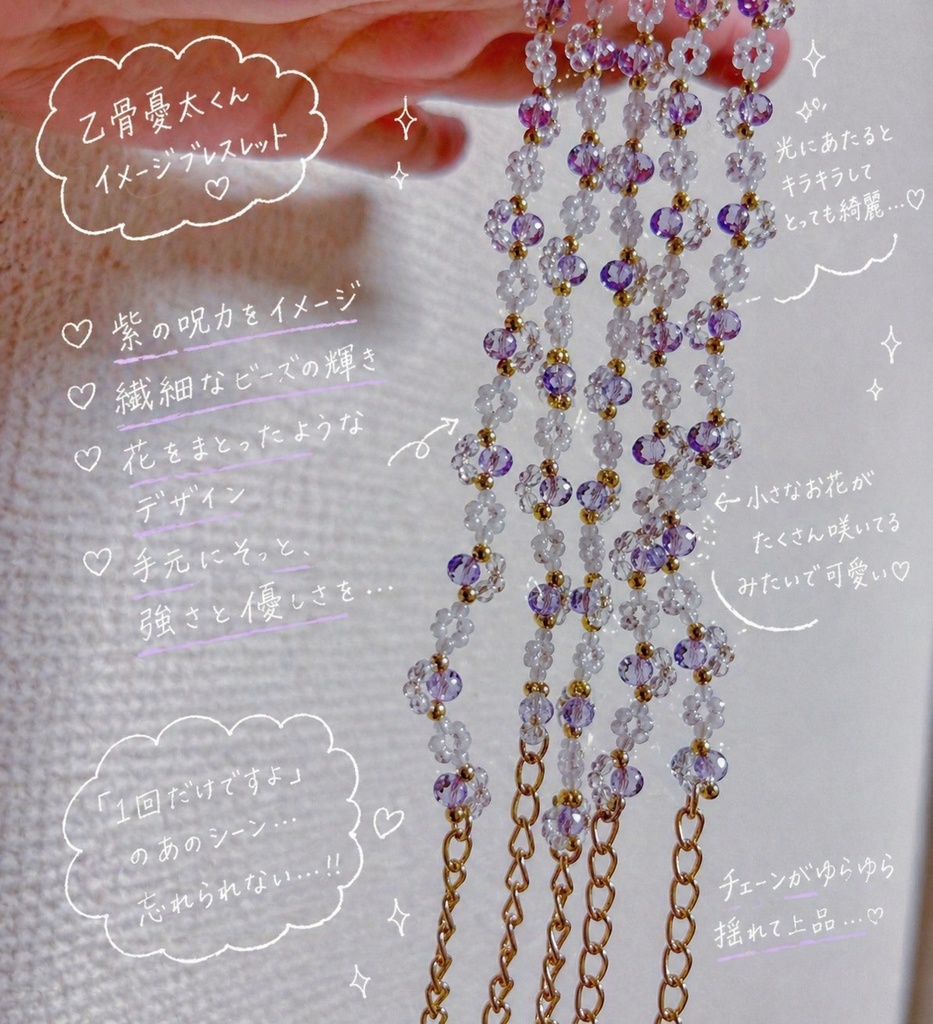 乙骨憂太くん
イメージブレスレット♡
光にあたると
キラキラして
とっても綺麗…♡
♡ 紫の呪力をイメージ
♡ 繊細なビーズの輝き
♡ 花をまとったような
デザイン
♡ 手元にそっと、
強さと優しさを…
小さなお花が
たくさん咲いてる
みたいで可愛い♡
「1回だけですよ」
のあのシーン…
忘れられない…!!
チェーンがゆらゆら
揺れて上品…♡